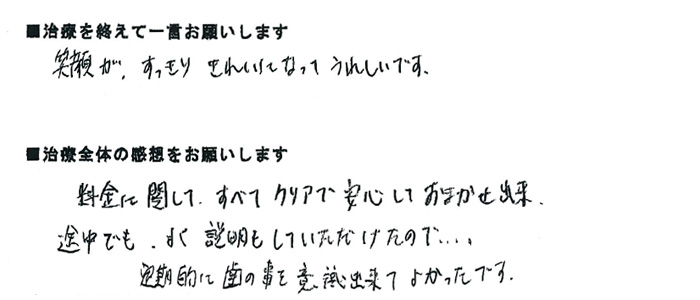 ■治療を終えて一言お願いします
笑顔が、すっきり きれいになって うれしいです。
■治療全体の感想をお願いします
料金に関して、すべて クリアで 安心して おまかせ出来、
途中でも、よく 説明もしていただけたので...、
定期的に 歯の事を 意識出来て よかったです。